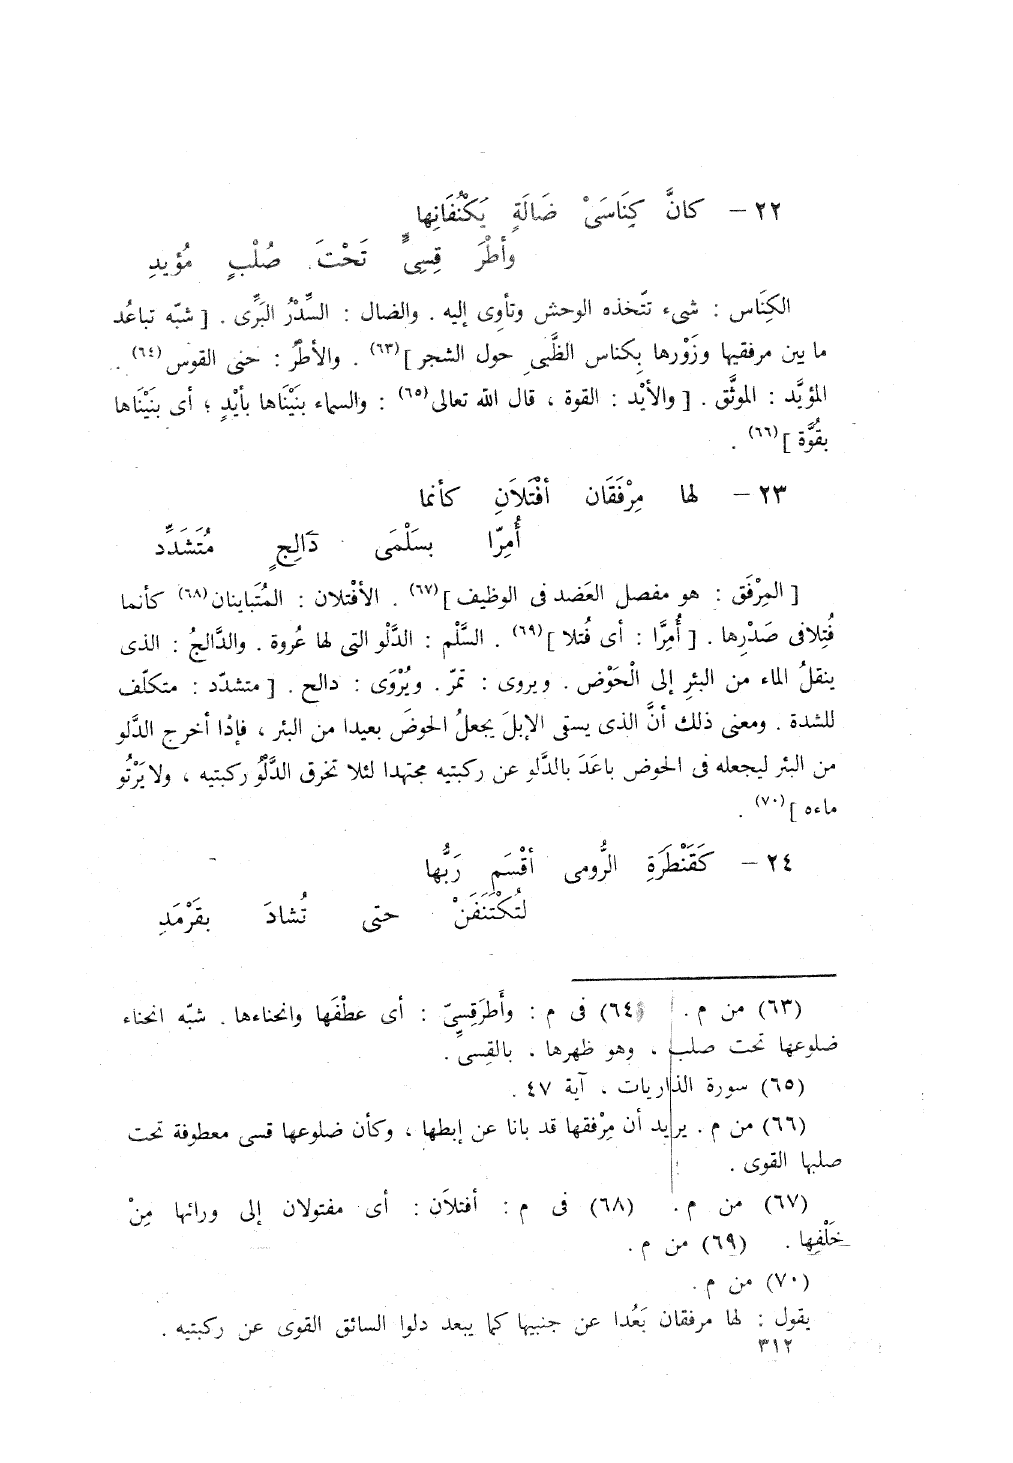 ٢٢ – كانَّ كِنَاسَىْ ضَالَةٍ يَكْنُفَانِها
وأطْرَ قِسِىٍّ تَحْتَ صُلْبٍ مُؤيدِ
الكِنَاس : شىء تتّخذه الوحش وتأوِى إليه . والضال : السِّدْرُ البَرِّى . [ شبّه تباعُد
ما بين مرفقيها وزَوْرها بِكناس الظَّبىِ حول الشجر ](٦٣) . والأطْرُ : حنى القوس(٦٤) .
المؤيَّد : الموثَّق . [ والأيْد : القوة ، قال الله تعالى(٦٥) : والسماء بنَيْنَاها بأيْدٍ ؛ أى بنَيْنَاها
بقُوَّة ](٦٦) .
٢٣ – لها مِرْفَقَان أفْتَلاَنِ كأنما
أُمِرّا بسَلْمَى دَالِجٍ مُتَشَدِّد
[ المِرْفَق : هو مفصل العَضد فى الوظيف ](٦٧) . الأفْتلان : المُتَباينان(٦٨) كأنما
فُتِلافى صَدْرِها . [ أُمِرَّا : أى فُتلا ](٦٩) . السَّلْم : الدَّلْو التى لها عُروة . والدَّالجُ : الذى
ينقلُ الماء من البئرِ إلى الْحَوْض . ويروى : تمرّ . ويُرْوَى : دالح . [ متشدّد : متكلّف
للشدة . ومعنى ذلك أنَّ الذى يستى الإبلَ يجعلُ الحوضَ بعيدا من البئر ، فإذْا أخرج الدَّلو
من البئر ليجعله فى الحوض باعَدَ بالدَّلو عن ركبتيه مجتهدا لئلا تخرق الدَّلْوُ ركبتيه ، ولا يَرْتُو
ماءه ](٧٠) .
٢٤ – كَقَنْطَرَةِ الرُّومى أقْسَم رَبُّها
لتُكْتَنَفَنْ حتى تُشادَ بقَرْمَدِ
(٦٣) من م . (٦٤) فى م : وأَطرَقِسِىّ : أى عطْفَها وانحناءها . شبّه انحناء
ضلوعها تحت صلب ، وهو ظهرها ، بالقِسىّ .
(٦٥) سورة الذاريات ، آية ٤٧ .
(٦٦) من م . يريد أن مِرْفقها قد بانا عن إبطها ، وكأن ضلوعها قسى معطوفة تحت
صلبها القوى .
(٦٧) من م . (٦٨) فى م : أفتلاَن : أى مفتولان إلى ورائها مِنْ
خَلْفِها . (٦٩) من م .
(٧٠) من م .
يقول : لها مرفقان بَعُدا عن جنبيها كما يبعد دلوا السائق القوى عن ركبتيه .
٣١٢